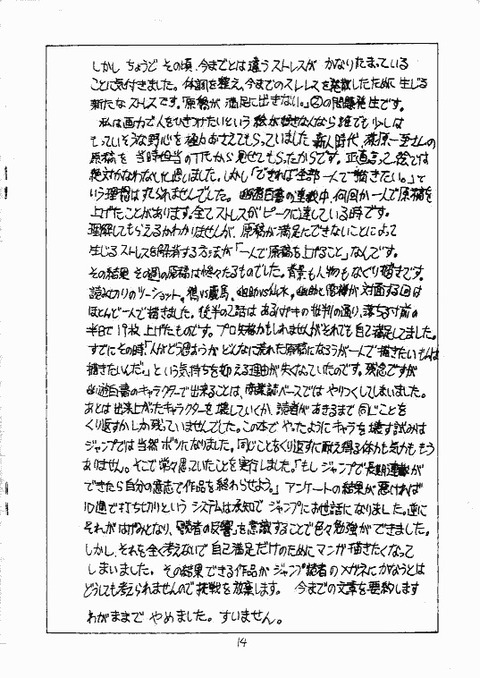 しかし ちょうど その頃、今までとは違うストレスが かなりたまっている
ことに気付きました。体調を整え、今までのストレスを発散したために生じる
新たなストレスです。「原稿が満足に出きない。」②の問題発生です。
私は画力で人をひきつけたいという 絵が好きな人なら誰でも少しは
もっていそうな野心を 極力おさえてもらっていました 新人時代、萩原一至さんの
原稿を 当時担当のTだから 見せてもらったからです。正直言って絵では
絶対かなわないと思いました。しかし「できれば全部一人で描きたい。」と
いう理想はすてられませんでした。幽遊白書の連載中、何回か一人で原稿を
上げたことがあります。全てストレスがピークに達している時です。
理解してもらえるかわかりませんが、原稿が満足にできないことによって
生じるストレスを解消する方法が「一人で原稿を上げること」なんです。
その結果 その週の原稿は惨々たるものでした。背景も人物もなぐり描きです。
読み切りのツーショット。鴉VS蔵馬、幽助VS仙水、幽助と雷禅が対面する回は
ほとんど一人で描きました。後半の2話は あるハガキの批判の通り、落ちる寸前の
半日で19枚上げたものです。プロ失格かもしれませんがそれでも自己満足してました。
すでにその時「人がどう思おうがどんなに荒れた原稿になろうが一人で描きたいもんは
描きたいんだ。」という気持を抑える理由が失くなっていたのです。残念ですが
幽遊白書のキャラクターで出来ることは、商業誌ベースではやりつくしてしまいました。
あとは出来上がたキャラクターを壊していくか、読者があきるまで同じことを
くり返すかしか残っていませんでした。この本で やったようにキャラを壊す試みは
ジャンプでは当然ボツになりました。同じことをくり返すに耐え得る体力も気力ももう
ありません。そこで常々思っていたことを実行しました。「もし ジャンプで長期連載が
できたら自分の意志で作品を終わらせよう。」アンケートの結果が悪ければ
10週で打ち切りというシステムは承知で ジャンプにお世話になりました。逆に
それがはげみとなり、「読者の反響」を意識することで色々勉強ができました。
しかし、それを全く考えないで 自己満足だけのためにマンガ描きたくなって
しまいました。その結果できる作品がジャンプ読者のメガネにかなうとは
どうしても考えられませんので挑戦を放棄します。 今までの文章を要約します
わがままで やめました。すいません。
14